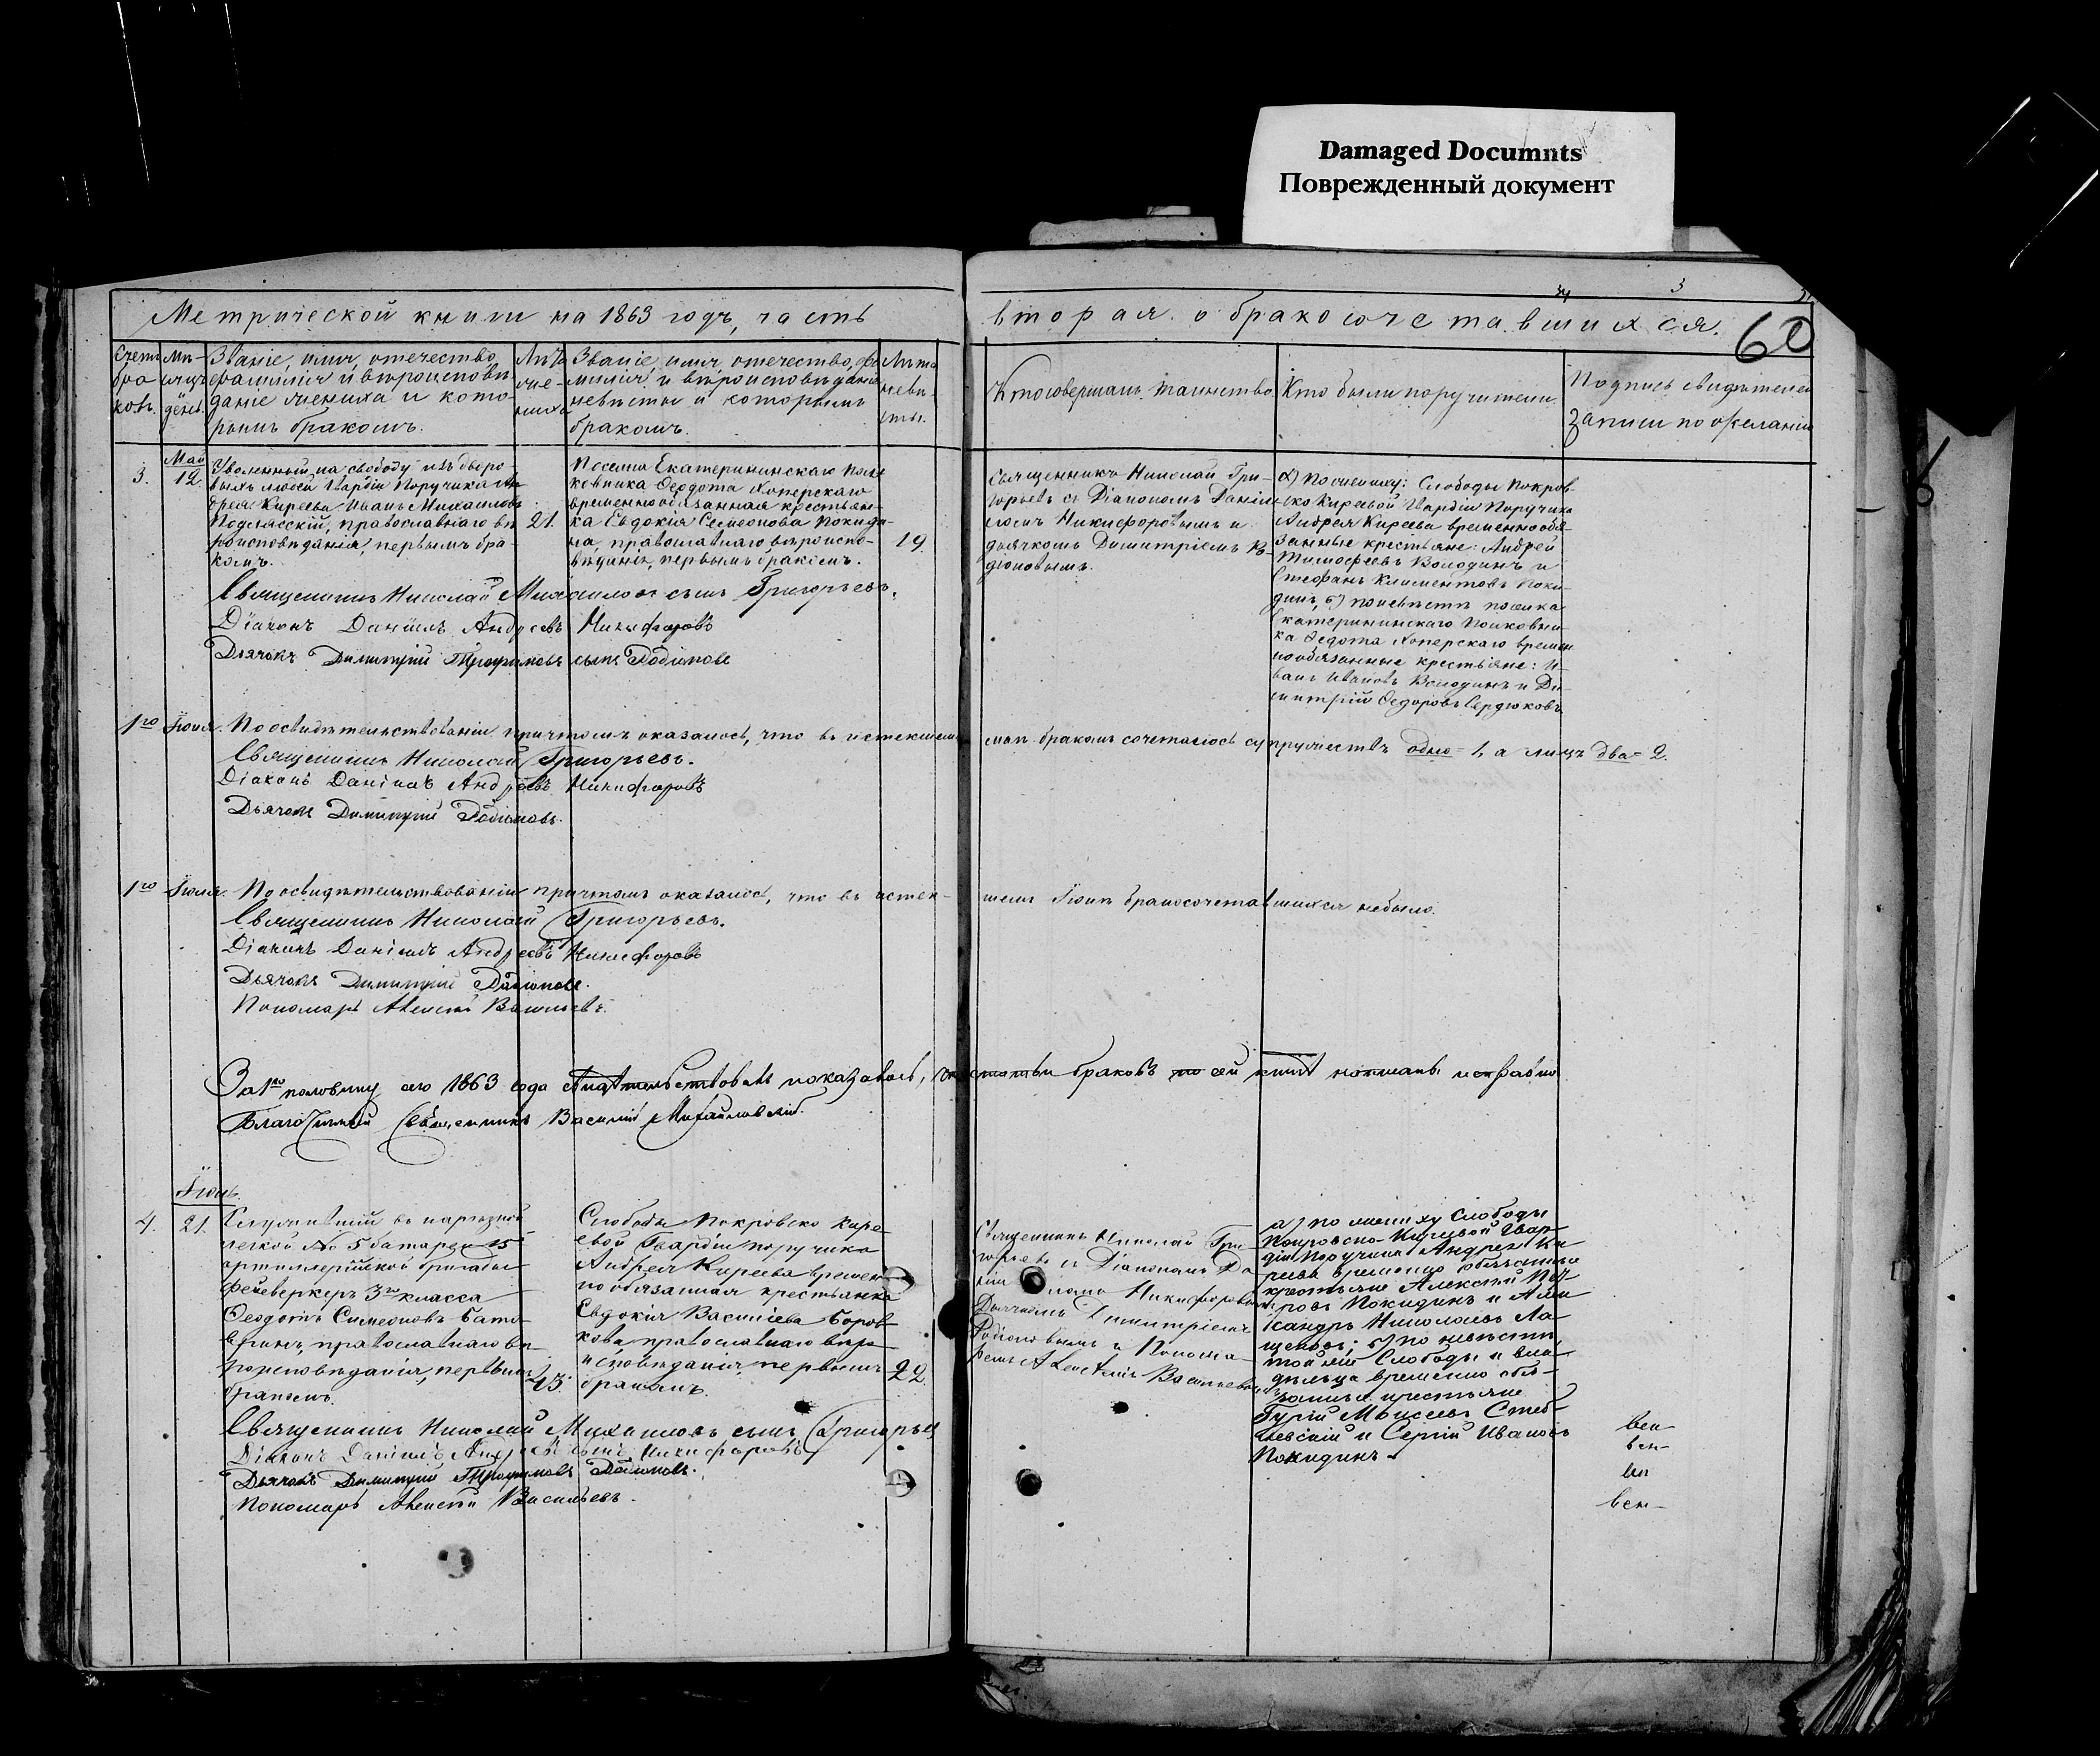 Damaged Documnts
Поврежденный документ
3
60
Метрической книги на 1863 годъ, часть
вторая о бракосочетавшихся.
Счетъ бра ковъ.
Мѣ- сяцъ и день.
Званіе, имя, отечество,
фамилія и вѣроисповѣ
даніе жениха и кото-
рымъ бракомъ.
Лѣта же- ниха
Званіе, имя, отечество, фа
милія и вѣроисповѣданіе
невѣсты и которымъ
бракомъ.
Лѣта невѣ- сты.
Кто совершалъ таинство
Кто были поручители
Подпись свидѣтелей
записи по желанію
3.
Май
12.
Уволенный на свободу изъ дворо-
выхъ людей Гвардіи Поручика Ан
дрея Киреева Иванъ Михаиловъ
Подлясскій, православнаго вѣ
роисповѣданія, первымъ бра-
комъ.
21.
Поселка Екатерининскаго Пол
ковника Ѳедота Хоперскаго
временнообязанная крестьян-
ка Евдокія Семеонова Покиди-
на, православнаго вѣроиспо-
вѣданія, первымъ бракомъ.
19.
Священникъ Николай Гри-
горьевъ съ Діакономъ Даніи
ломъ Никифоровымъ и
дьячкомъ Димитріемъ Ро-
діоновымъ.
а) По жениху: Слободы Покров
ско Киреевой Гвардіи Поручика
Андрея Киреева временнообя-
занные крестьяне: Андрей
Тимофеевъ Володинъ и
Стефанъ Климентовъ Поки-
динъ, б) по невѣстѣ поселка
Екатерининскаго Полковни-
ка Ѳедота Хоперскаго времен
нообязанные крестьяне: И-
ванъ Ивановъ Володинъ и Ди-
митрій Ѳедоровъ Сердюковъ
Священникъ Николай Михаиловъ сынъ Григорьевъ.
Діаконъ Даніилъ Андреевъ Никифоровъ
Дьячокъ Димитрій Трофимовъ сынъ Родіоновъ
1го Іюня. По освидѣтельствованіи причтомъ оказалось, что въ истекшемъ маѣ бракомъ сочеталось супружествъ одно = 1, а лицъ два = 2.
Священникъ Николай Григорьевъ.
Діаконъ Даніилъ Андреевъ Никифоровъ
Дьячокъ Димитрій Родіоновъ.
1го Іюля. По освидѣтельствованіи причтомъ оказалось, что въ истек- шемъ Іюнѣ бракосочетавшихся небыло.
Священникъ Николай Григорьевъ.
Діаконъ Даніилъ Андреевъ Никифоровъ
Дьячокъ Димитрій Родіоновъ.
Пономарь Алексѣй Васильевъ.
За 1ю половину сего 1863 года свидѣтельствовалъ показалось, статьи браковъ по сей книгѣ исправно
Благочинный Священникъ Василій Михайловскій.
Іюль.
4.
21.
Служившій въ нарѣзной
легкой № 5 батареи 15
артиллерійской бригады
фейверкеръ 3го класса
Ѳеодотъ Симеоновъ
православнаго вѣ-
роисповѣданія, первымъ
бракомъ.
Слободы Покровско Кире
евой Гвардіи поручика
Андрея Киреева времен
нообязанная крестьянка
Евдокія Васильева Боров-
кова, православнаго вѣро
исповѣданія, первымъ
бракомъ.
22.
Священникъ Николай Гри-
горьевъ съ Діакономъ Да
ніиломъ Никифоровымъ,
Дьячкомъ Димитріемъ
Родіоновымъ и Понома-
ремъ Алексѣемъ Васильевымъ
а) по жениху Слободы
Покровско-Киреевой Гвар-
діи Поручика Андрея Ки
реева временно обязанные
крестьяне Алексѣй Пет-
ровъ Покидинъ и Але
ксандръ Николаевъ Ла-
щеновъ; б) по невѣстѣ
той же Слободы и вла
дѣльца временно обя-
занные крестьяне
Гурій Моисеевъ Стеб-
левскій и Сергій Ивановъ
Покидинъ.
Священникъ Николай Михаиловъ сынъ Григорьевъ
Діаконъ Даніилъ Андреевъ сынъ Никифоровъ
Дьячокъ Димитрій Трофимовъ Родіоновъ.
Пономарь Алексѣй Васильевъ.